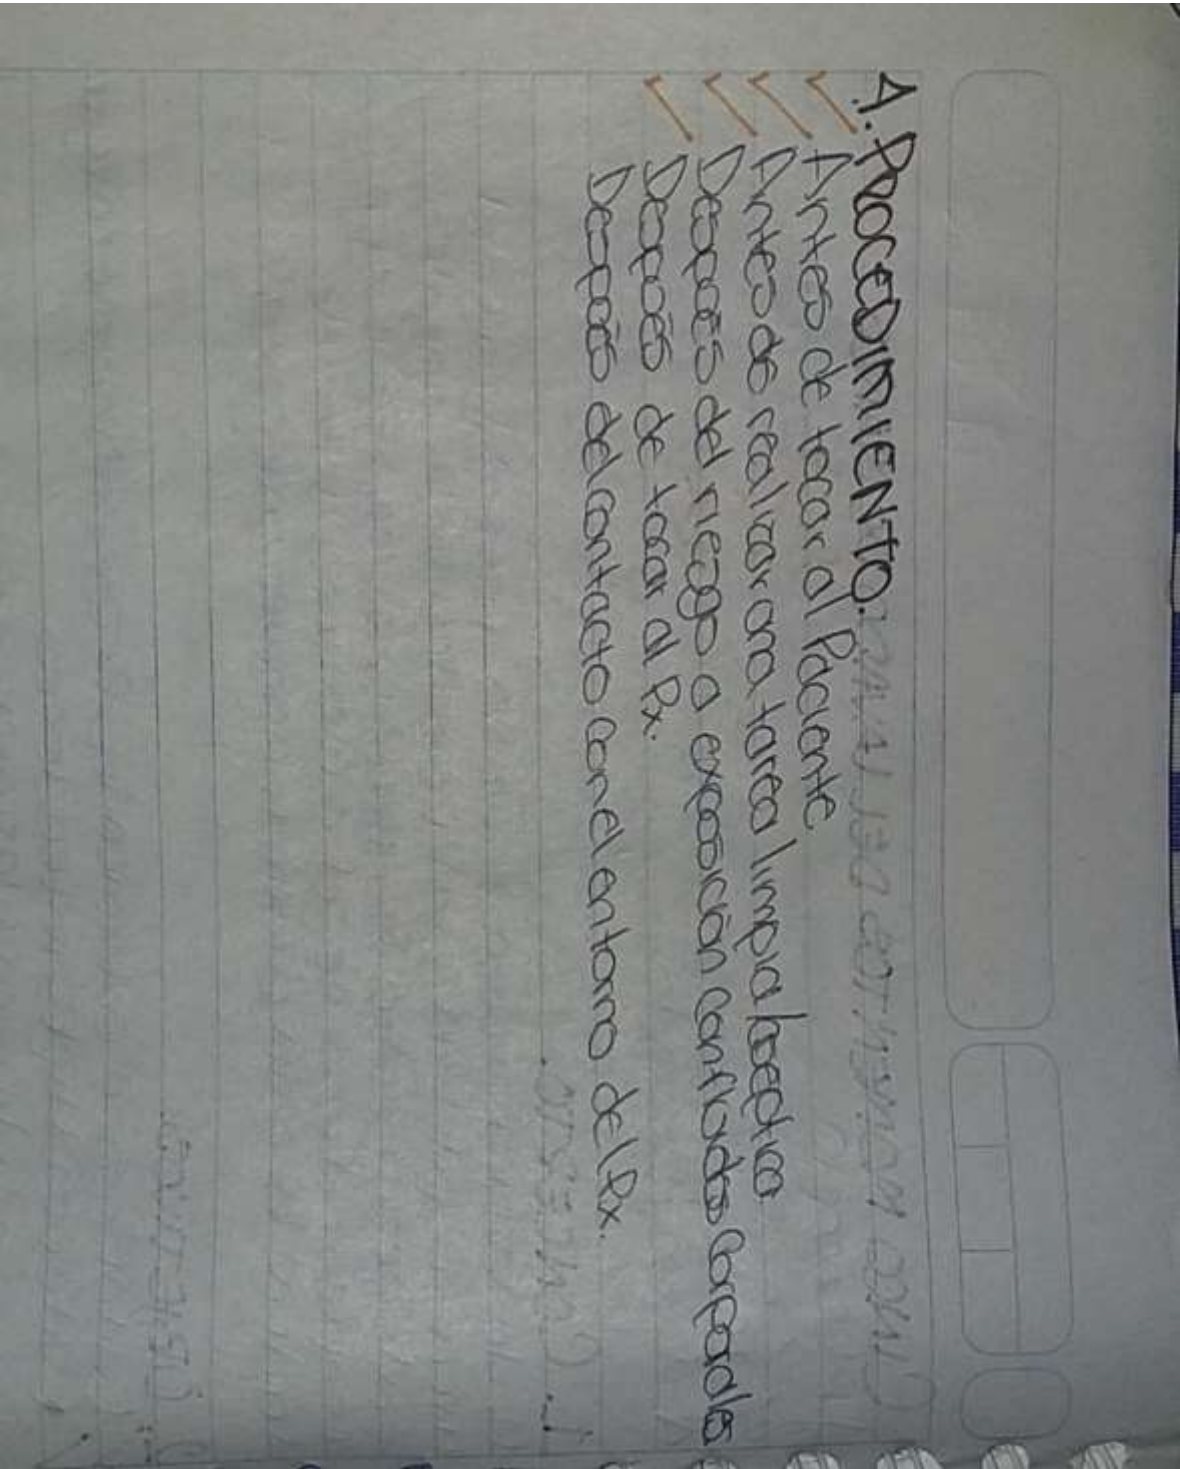 1. PROCEDIMIENTO.
Antes de tocar al Paciente
Antes de realizar una tarea limpia/aseptica
Después del riesgo a exposición con fluidos corporales
Después de tocar al Px.
Después del contacto con el entorno del Px.